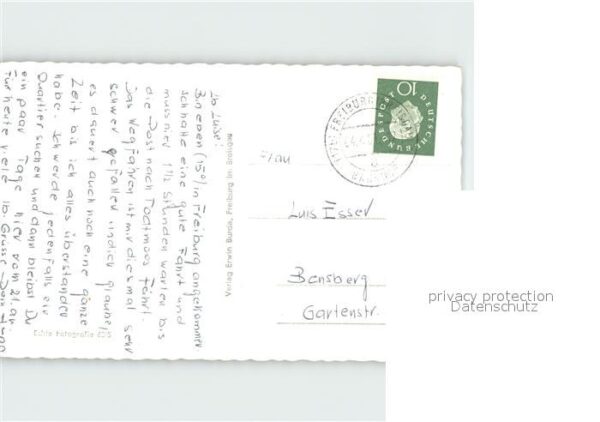 lb Luise!
Bin eben (15⁰⁰) in Freiburg angekommen.
Ich hatte eine gute Fahrt und
muss hier 1½ Stunden warten bis
die Post nach Todtmoos fährt.
Das Wegfahren ist mir diesmal sehr
schwer gefallen und ich glaube,
es dauert auch noch eine ganze
Zeit bis ich alles überstanden
habe. Ich werde jedenfalls ein
Quartier suchen und dann bleibst Du
ein paar Tage hier vom 21. an.
Für heute viele lb. Grüsse Dein
Echte Fotografie
Verlag Erwin Burda, Freiburg im Breisgau
FREIBURG
10
DEUTSCHE
BUNDESPOST
Frau
Luis Esser
Bensberg
Gartenstr.
privacy protection
Datenschutz